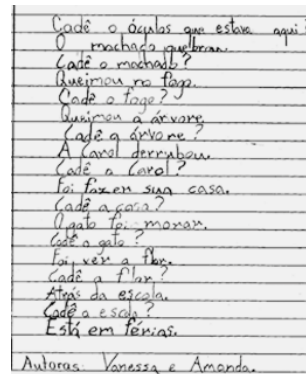 Cadê o óculos que estava aqui
O machado quebrou.
Cadê o machado?
Queimou no fogo.
Cadê o fogo?
Queimou a árvore
Cadê a árvore?
A Carol derrubou.
Cadê a Carol?
Foi fazer sua casa.
Cadê a casa?
O gato foi morar.
Cadê o gato?
Foi ver a flor.
Cadê a flor?
Atrás da escola.
Cadê a escola?
Está em férias.
Autoras: Vanessa e Amanda.